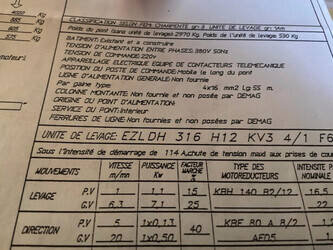 CLASSIFICATION SELON FEM CHARPENTE gr: II UNITE DE LEVAGE gr: 1Am
Poids du pont (sans unité de levage) 2970 Kg. Poids de l'unité de levage: 530 Kg
BATIMENT: Existant et a construire
TENSION D'ALIMENTATION ENTRE PHASES: 380V 50Hz
TENSION DE COMMANDE: 220v
APPAREILLAGE ELECTRIQUE EQUIPE DE CONTACTEURS TELEMECANIQUE
POSITION DU POSTE DE COMMANDE: Mobile le long du pont
LIGNE D'ALIMENTATION GENERALE: Non fournie
Par gaine type 4x16 mm2 Lg: 55 m.
COLONNE MONTANTE: Non fournie et non posée par DEMAG
ORIGINE DU POINT D'ALIMENTATION:
SERVICE DU PONT: Interieur
FERRURES DE LIGNE: Non fournies et non posées par DEMAG
UNITE DE LEVAGE: EZLDH 316 H12 KV3 4/1 F6
Sous l'Intensité de démarrage de 114 A chute de tension maxi aux prises de cour
MOUVEMENTS VITESSE m/mn PUISSANCE Kw FACTEUR MARCHE % TYPE DES MOTOREDUCTEURS INTENSITE NOMINALE
LEVAGE P.V 1 1,1 15 KBH 140 B2/12 16.5
G.V 6,3 7,1 25 22
DIRECTION P.V 5 1x0,13 40 KBF 80 A 8/2
G.V 20 1x0,50 AF05